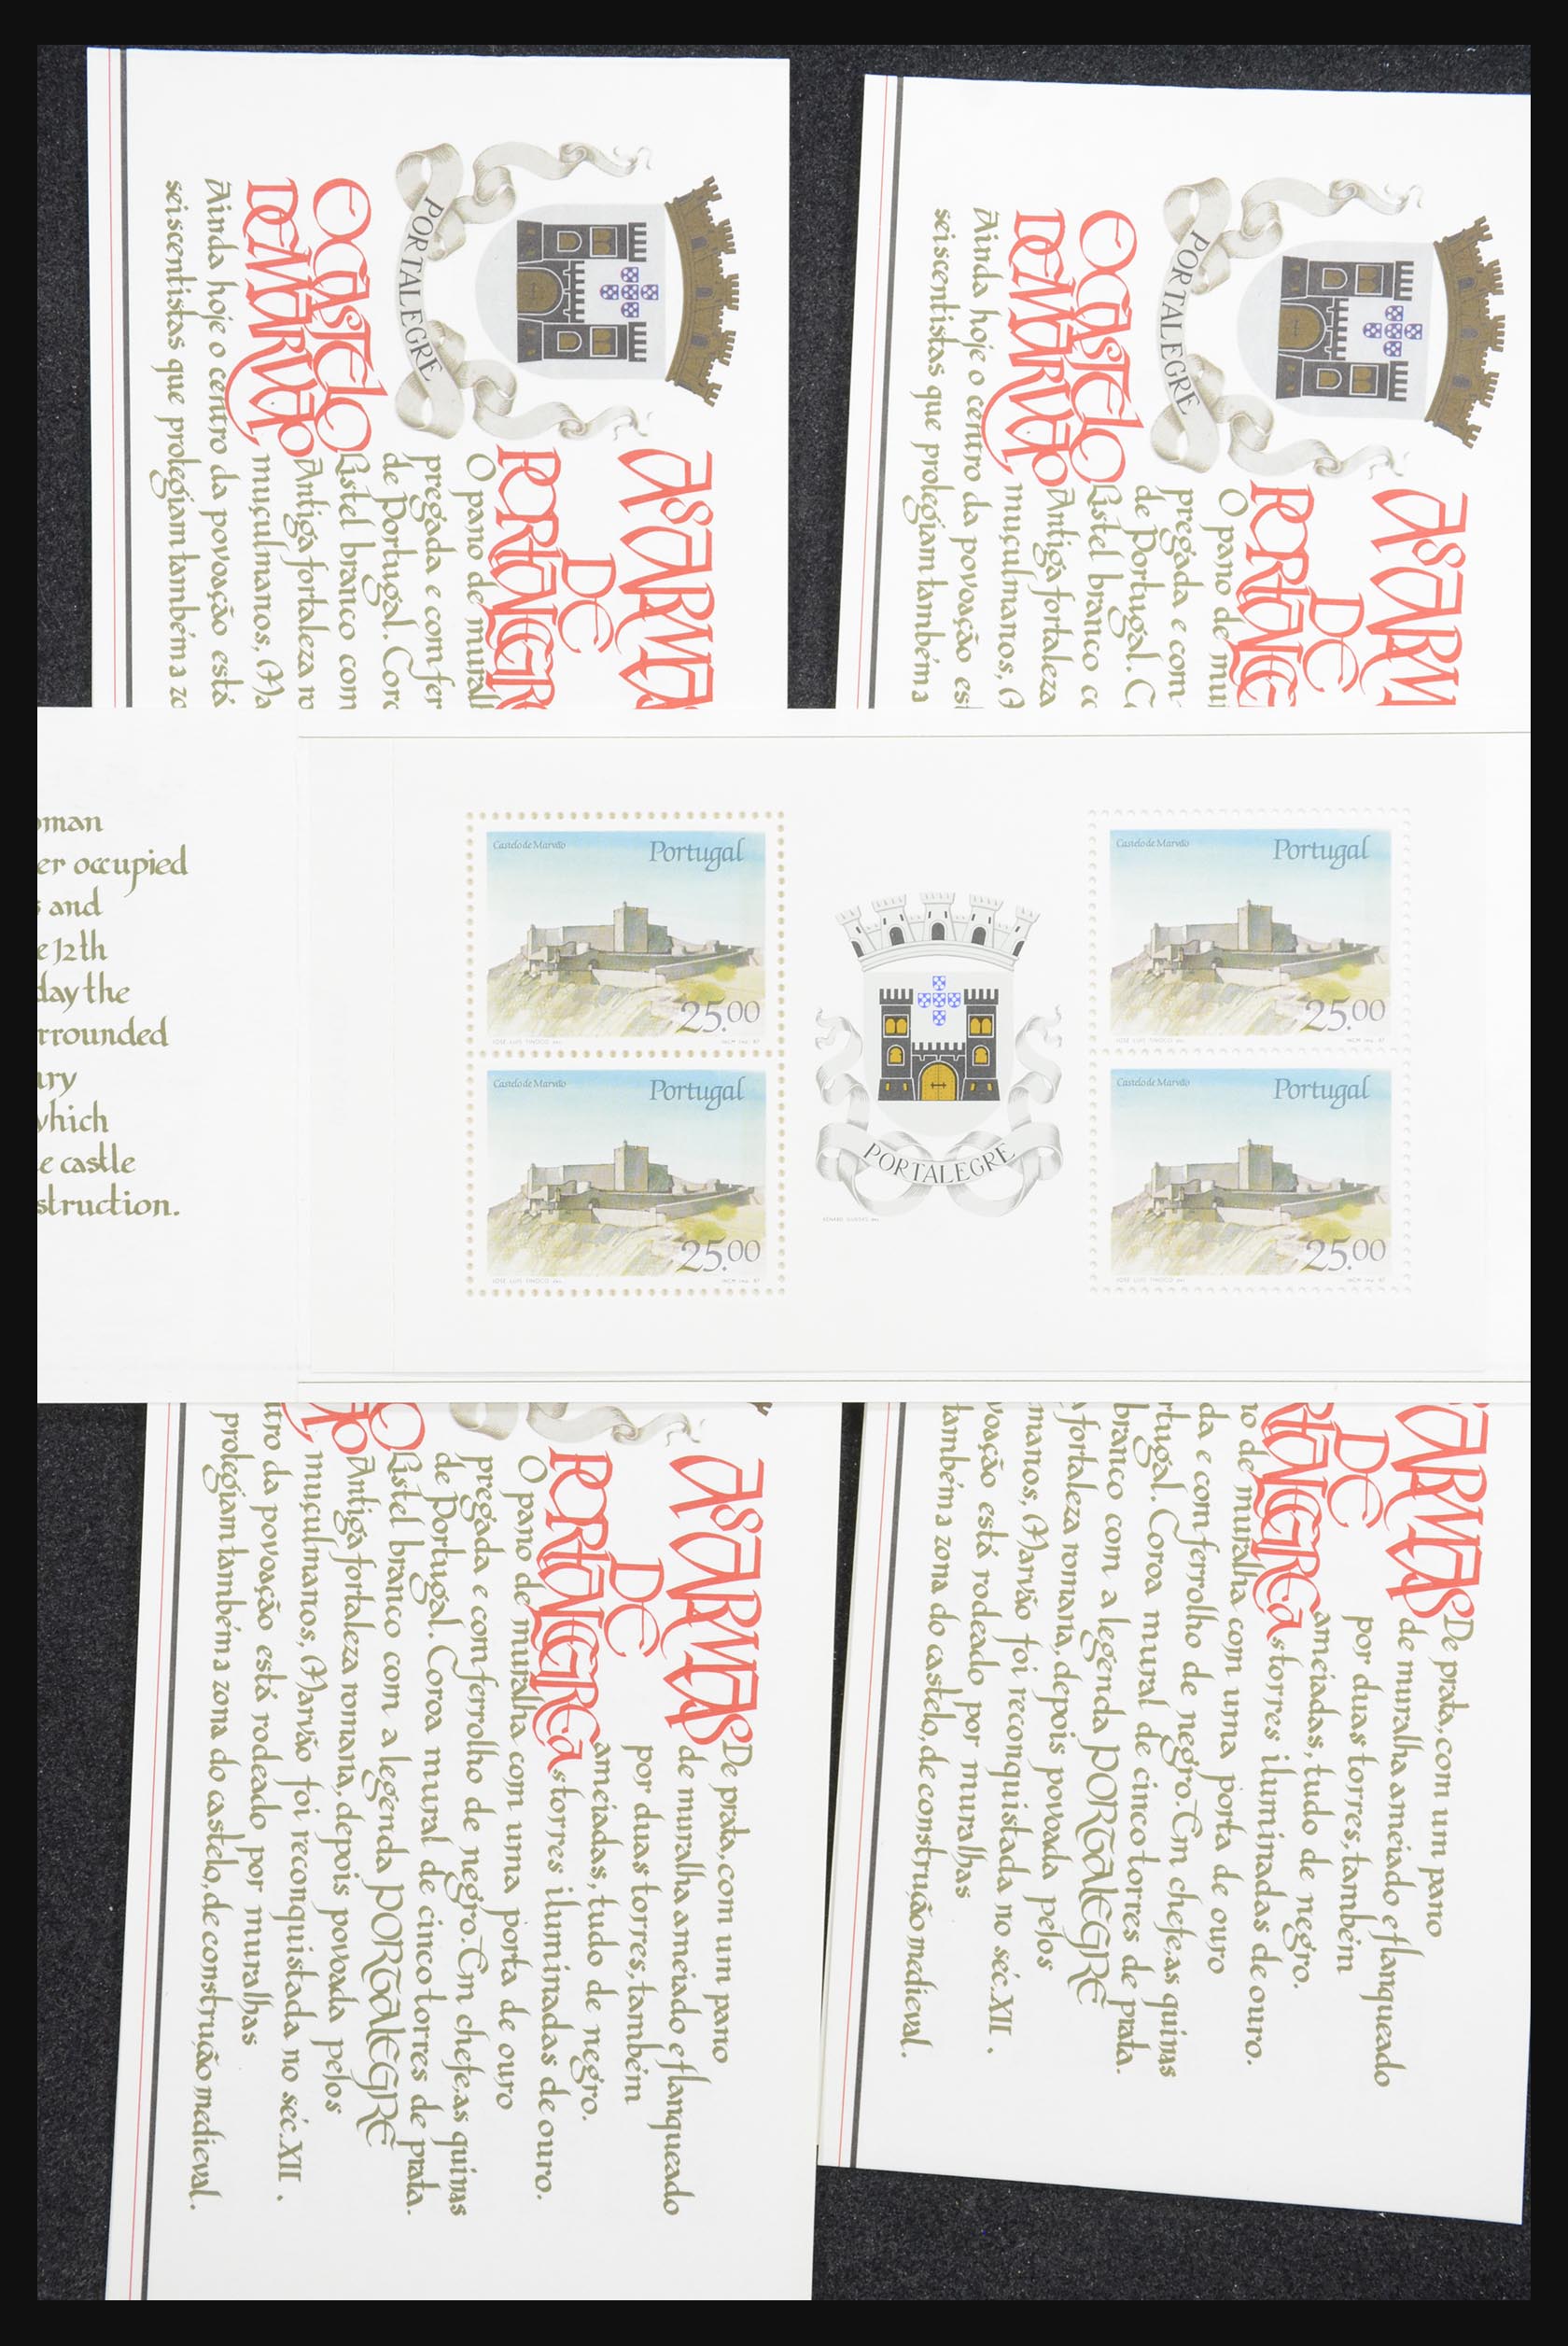 PORTALEGRE
AS ARMA
DE
PORTALEGR
O pano de mural
pregada e com fer
de Portugal. Coro
Listel branco com
O CASTELO
DE MARVÃO
Antiga fortaleza ro
muçulmanos, Ma
Ainda hoje o centro da povoação está
seiscentistas que protegiam também a zo
PORTALEGRE
AS ARM
DE
PORTALEG
O pano de mu
pregada e com
de Portugal. C
Listel branco c
O CASTELO
DE MARVÃO
Antiga fortaleza
muçulmanos, M
Ainda hoje o centro da povoação es
seiscentistas que protegiam também a
oman
er occupied
s and
e 12th
day the
rrounded
ary
which
e castle
struction.
Castelo de Marvão
Portugal
25.00
JOSÉ LUIS TINOCO del.
INCM imp. 87
Castelo de Marvão
Portugal
25.00
JOSÉ LUIS TINOCO del.
INCM imp. 87
PORTALEGRE
Castelo de Marvão
Portugal
25.00
JOSÉ LUIS TINOCO del.
INCM imp. 87
Castelo de Marvão
Portugal
25.00
JOSÉ LUIS TINOCO del.
INCM imp. 87
AS ARMAS
DE
PORTALEGRE
De prata, com um pano
de muralha ameiado e flanqueado
por duas torres, também
ameiadas, tudo de negro.
As torres iluminadas de ouro.
O pano de muralha com uma porta de ouro
pregada e com ferrolho de negro. Em chefe, as quinas
de Portugal. Coroa mural de cinco torres de prata.
Listel branco com a legenda PORTALEGRE
Antiga fortaleza romana, depois povoada pelos
muçulmanos, Marvão foi reconquistada no séc. XII.
tro da povoação está rodeado por muralhas
protegiam também a zona do castelo, de construção medieval.
ARMAS
DE
RTALEGRE
De prata, com um pano
de muralha ameiado e flanqueado
por duas torres, também
ameiadas, tudo de negro.
As torres iluminadas de ouro.
o de muralha com uma porta de ouro
da e com ferrolho de negro. Em chefe, as quinas
rtugal. Coroa mural de cinco torres de prata.
branco com a legenda PORTALEGRE
fortaleza romana, depois povoada pelos
manos, Marvão foi reconquistada no séc. XII.
voação está rodeado por muralhas
também a zona do castelo, de construção medieval.